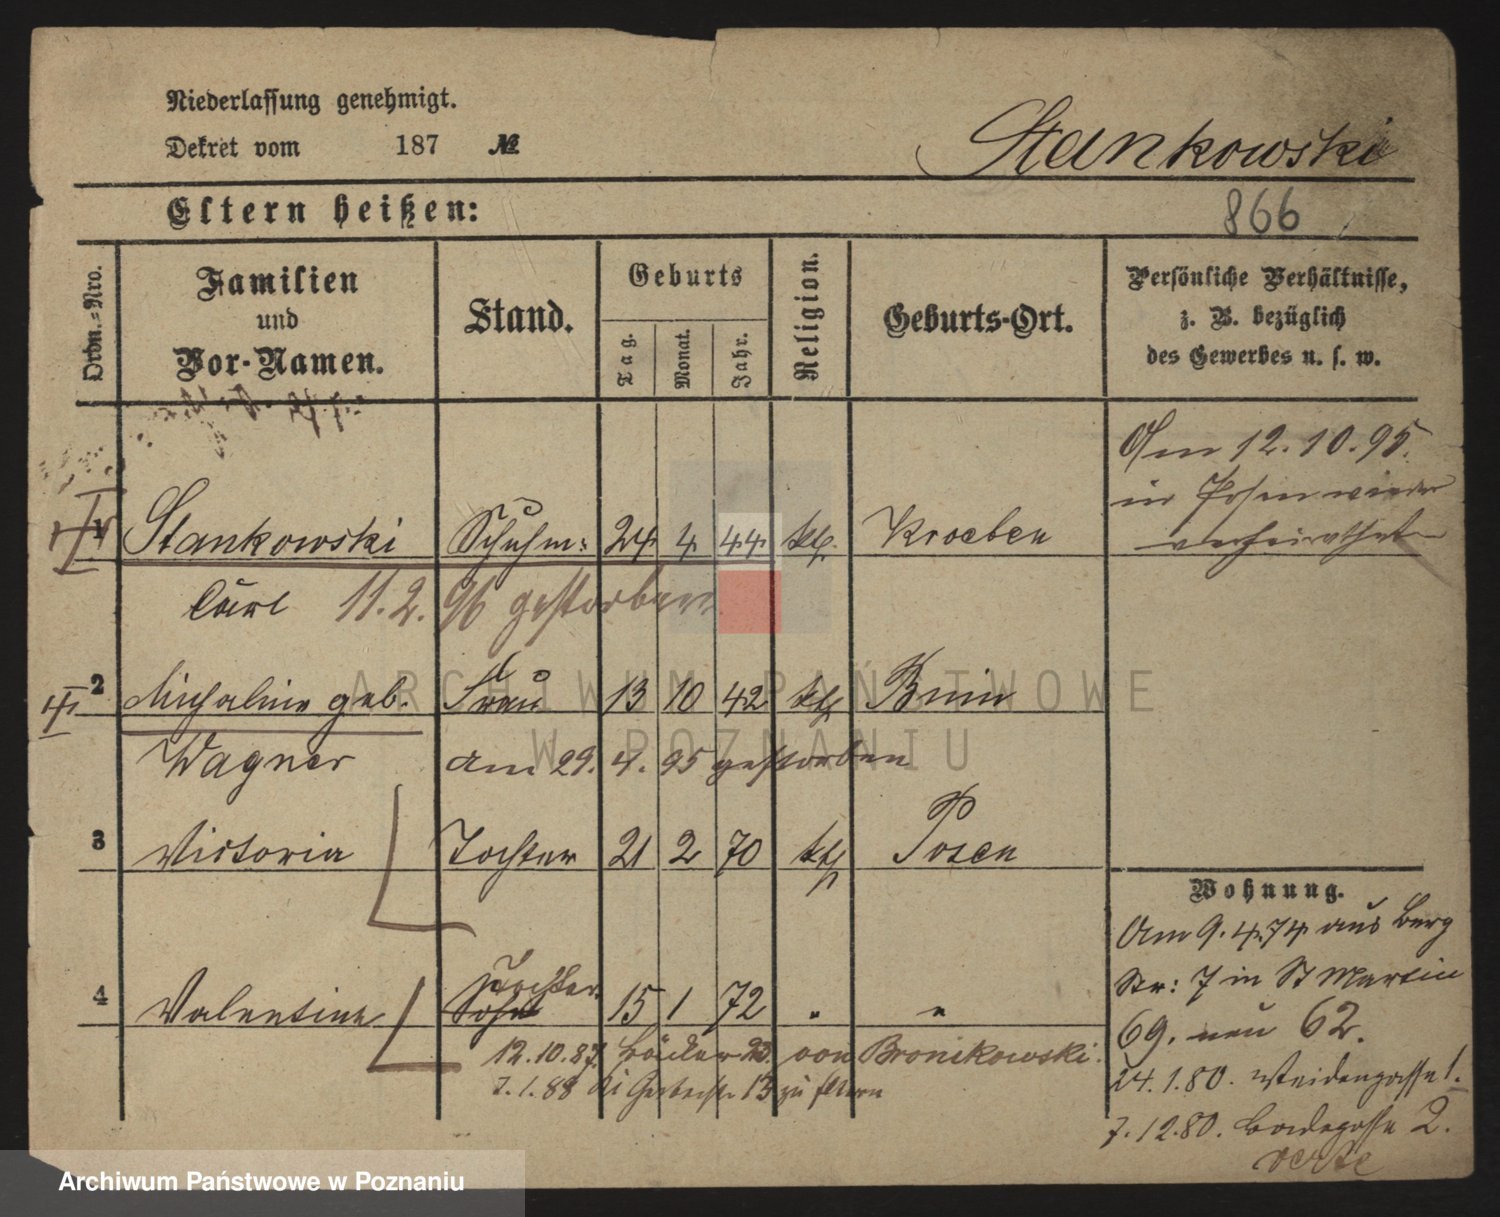 Niederlassung genehmigt.
Dekret vom 187 №
Stankowski
Eltern heißen:
866
Ordn.-Nro.
Familien
und
Vor-Namen.
Stand.
Geburts
Tag.
Monat.
Jahr.
Religion.
Geburts-Ort.
Persönliche Verhältnisse,
z. B. bezüglich
des Gewerbes u. s. w.
Am 12.10.95.
in Posen wieder
verheirathet
1 Stankowski Schuhm: 24 4 44 kth. Kroeben
Carl 11.2.96 gestorben.
2 Michaline geb. Frau 13 10 42 kth Bnin
Wagner am 29. 4. 95 gestorben
3 Victoria Tochter 21 2 70 kth Posen
4 Valentine Tochter Sohn 15 1 72 " "
12.10.87. Bäcker 23. von Bronikowski.
7.1.88 13 zu Eltern
Wohnung.
Am 9.4.74 aus Berg
Str: 7 in St Martin
69. neu 62.
24.1.80. Weidengasse 1.
7.12.80. Badegasse 2.
verte
ARCHIWUM PAŃSTWOWE
W POZNANIU
Archiwum Państwowe w Poznaniu